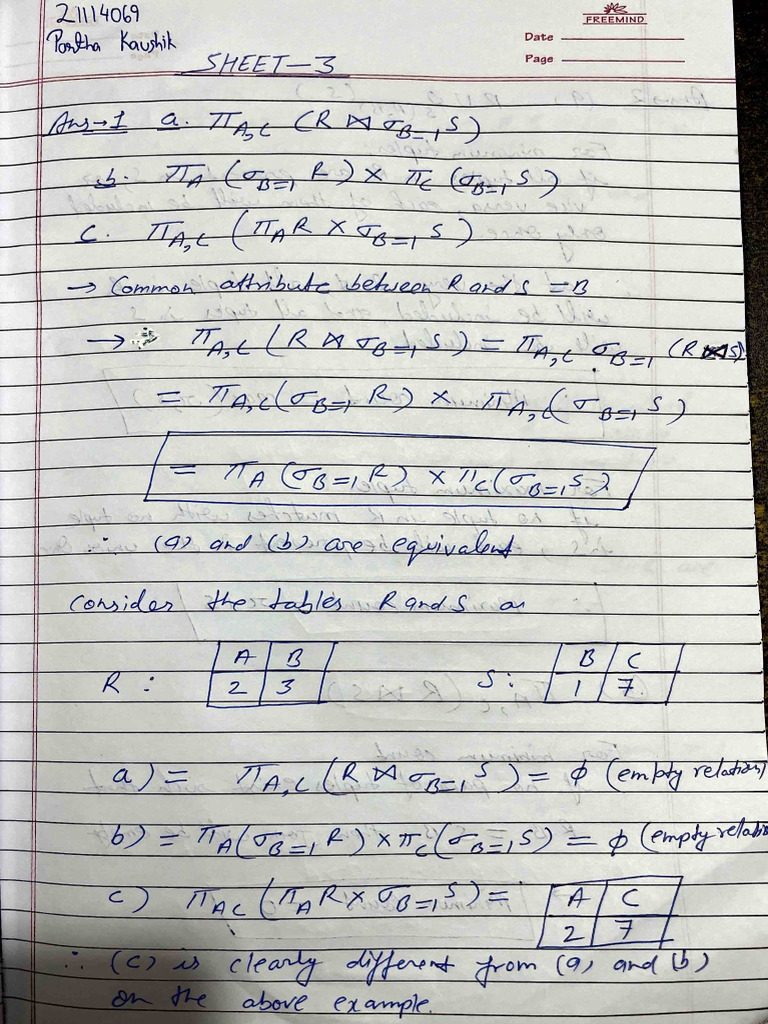 21114069
Partha Kaushik
FREEMIND
Date
Page
SHEET-3
Ans→1 a. π_{A,C} (R ⋈ σ_{B=1} S)
b. π_A (σ_{B=1} R) × π_C (σ_{B=1} S)
c. π_{A,C} (π_A R × σ_{B=1} S)
→ Common attribute between R and S = B
→ π_{A,C} (R ⋈ σ_{B=1} S) = π_{A,C} σ_{B=1} (R ⋈ S)
= π_{A,C} (σ_{B=1} R) × π_{A,C} (σ_{B=1} S)
= π_A (σ_{B=1} R) × π_C (σ_{B=1} S)
∴ (a) and (b) are equivalent
Consider the tables R and S as
A B B C
R : 2 3 S : 1 7
a) = π_{A,C} (R ⋈ σ_{B=1} S) = φ (empty relation)
b) = π_A (σ_{B=1} R) × π_C (σ_{B=1} S) = φ (empty relatio
c) π_{AC} (π_A R × σ_{B=1} S) = A C
2 7
∴ (c) is clearly different from (a) and (b)
on the above example.